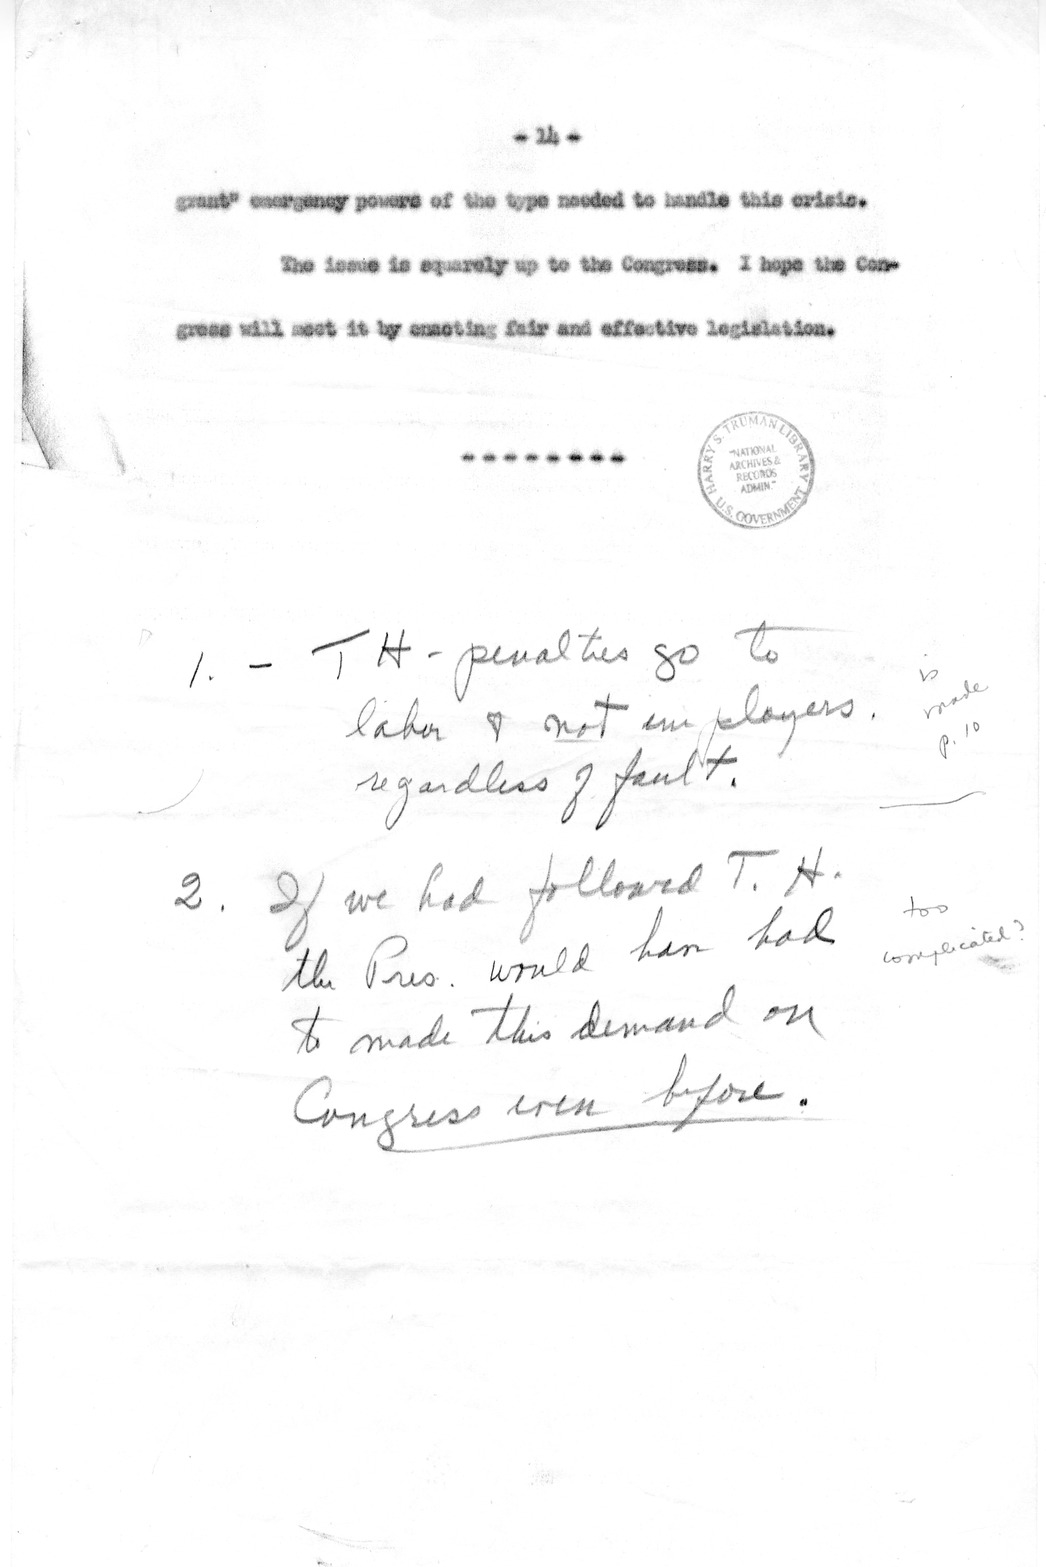 - 14 -
grant" emergency powers of the type needed to handle this crisis.
The issue is squarely up to the Congress. I hope the Con-
gress will meet it by enacting fair and effective legislation.
- - - - - - - -
HARRY S. TRUMAN LIBRARY
"NATIONAL
ARCHIVES &
RECORDS
ADMIN."
U.S. GOVERNMENT
1. - T H - penalties go to
labor & not employers.
regardless of fault.
is
made
p. 10
2. If we had followed T. H.
the Pres. would have had
to made this demand on
Congress even before.
too
complicated?